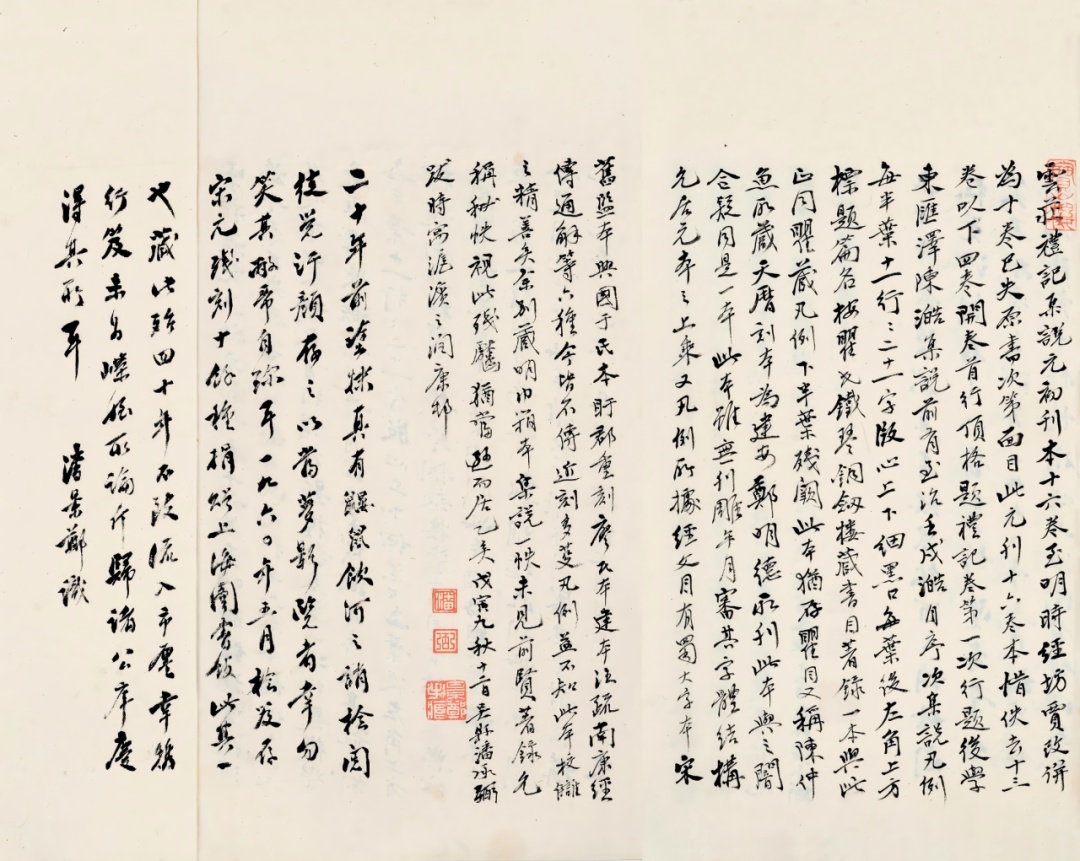 雲莊禮記集說元初刊本十六卷至明時經坊賈改併
為十卷已失原書次第面目此元刊十六卷本惜佚去十三
卷以下四卷開卷首行頂格題禮記卷第一次行題後學
東匯澤陳澔集說前有至治壬戌澔自序次集說凡例
每半葉十一行行二十一字版心上下細黑口每葉後左角上方
標題篇名按瞿氏鐵琴銅劍樓藏書目著錄一本與此
正同瞿藏凡例下半葉殘闕此本猶存瞿目又稱陳仲
魚所藏天曆刻本為建安鄭明德所刊此本與之閒
合疑同是一本此本雖無刊雕年月審其字體結構
允居元本之上乘又凡例所據經文目有蜀大字本宋
舊監本興國于氏本盱郡重刻廖氏本建本注疏南康經
傳通解等六種今皆不傳近刻多芟凡例益不知此本校讎
之精善矣余別藏明旧翻本集說一帙未見前賢著錄允
稱秘帙視此殘驪猶當遜而居乙矣戊寅九秋十二日吳縣潘承弼
跋時寓滬濱之潤康邨
二十年前塗抹真有鼹鼠飲河之誚檢閱
徒覺汗顏存之以當夢影覽者幸勿
笑其敝帚自珍耳一九六〇年五月檢及存
宋元殘刻十餘種捐贈上海圖書館此其一
也藏此殆四十年不致流入市廛幸終
行笈未局嶸秘所論斤歸諸公庠庶
得其所耳 潘景鄭識
潘
弼
景鄭